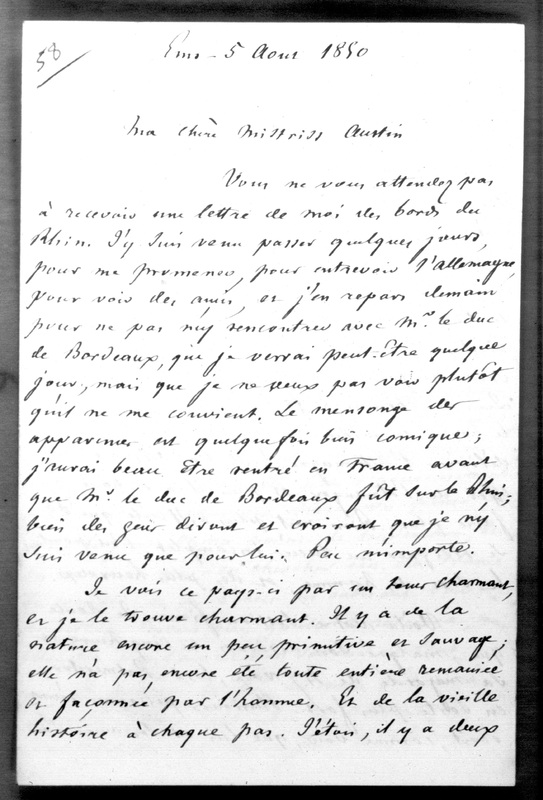 58
Ems - 5 Aout 1850
Ma chère Mistriss Austin
Vous ne vous attendez pas
à recevoir une lettre de moi des bords du
Rhin. J'y suis venu passer quelques jours,
pour me promener, pour entrevoir l'Allemagne,
pour voir des amis, et j'en repars demain
pour ne pas m'y rencontrer avec Mr. le duc
de Bordeaux, que je verrai peut-être quelque
jour, mais que je ne veux pas voir plutôt
qu'il ne me convient. Le mensonge des
apparences est quelquefois bien comique;
j'aurai beau être rentré en France avant
que Mr. le duc de Bordeaux fût sur le Rhin;
bien des gens diront et croiront que je n'y
suis venu que pour lui. Peu m'importe.
Je vois ce pays-ci par un tems charmant,
et je le trouve charmant. Il y a de la
nature encore un peu primitive et sauvage;
elle n'a pas encore été toute entière remaniée
et façonnée par l'homme. Et de la vieille
histoire à chaque pas. J'étois, il y a deux